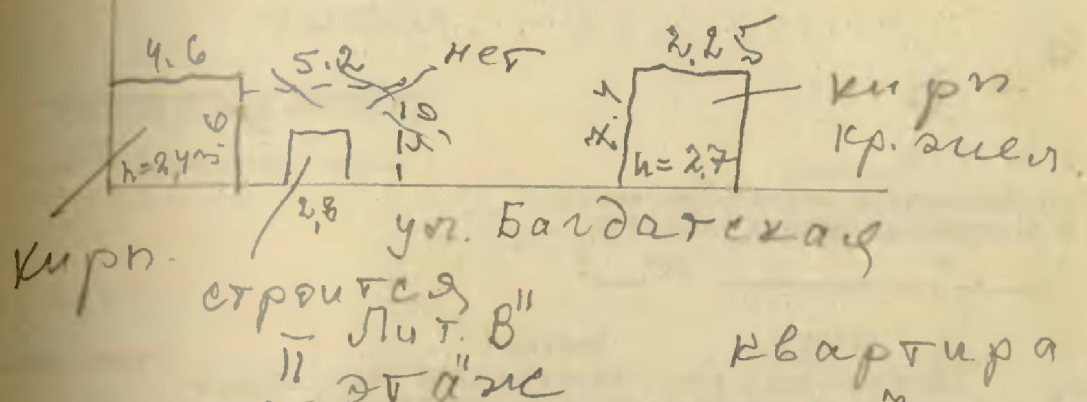 4.6 5.2 нет 2,25
кирп.
кр. жел.
6
h=2,45
h=2,7
2,8
ул. Багдатская
кирп.
строится
Лит. В"
II этаж
квартира